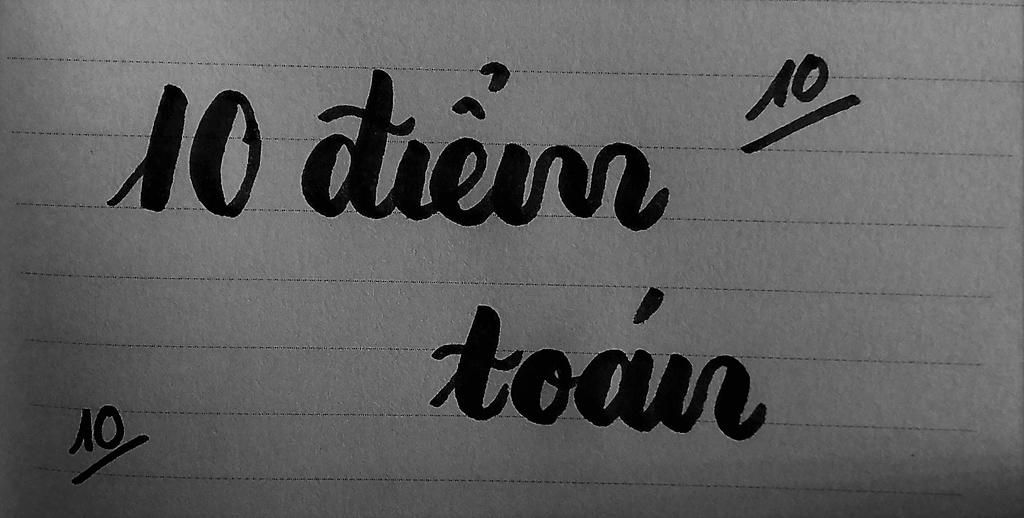 10
10 điểm
toán
10